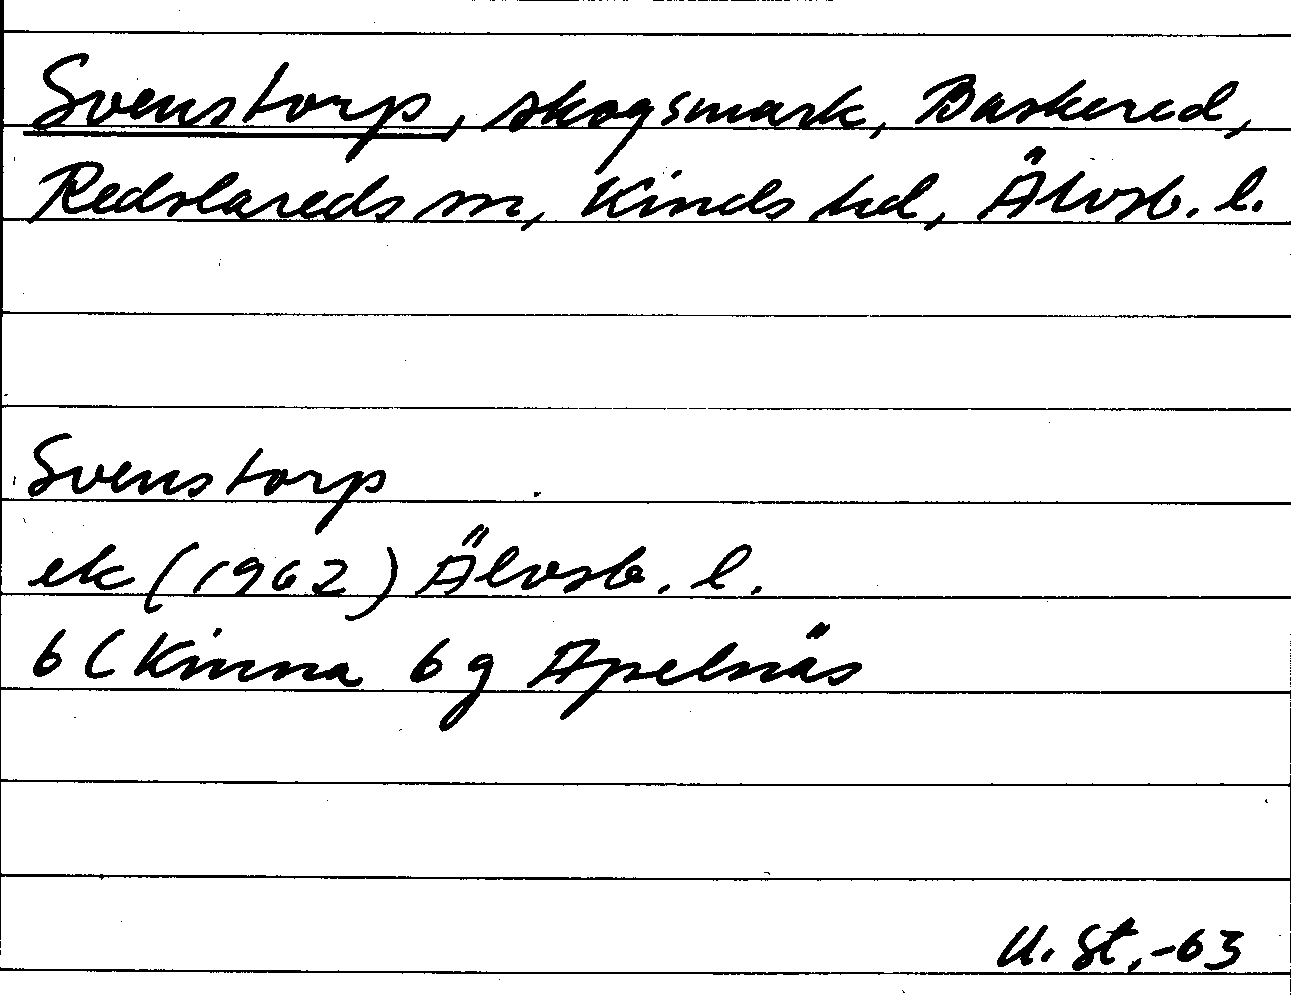 Svenstorp, skogsmark, Baskered,
Redslareds sn, Kinds hd, Älvsb. l.
Svenstorp
ek (1962) Älvsb. l.
6 C Kinna 6 g Apelnäs
U. St. -63